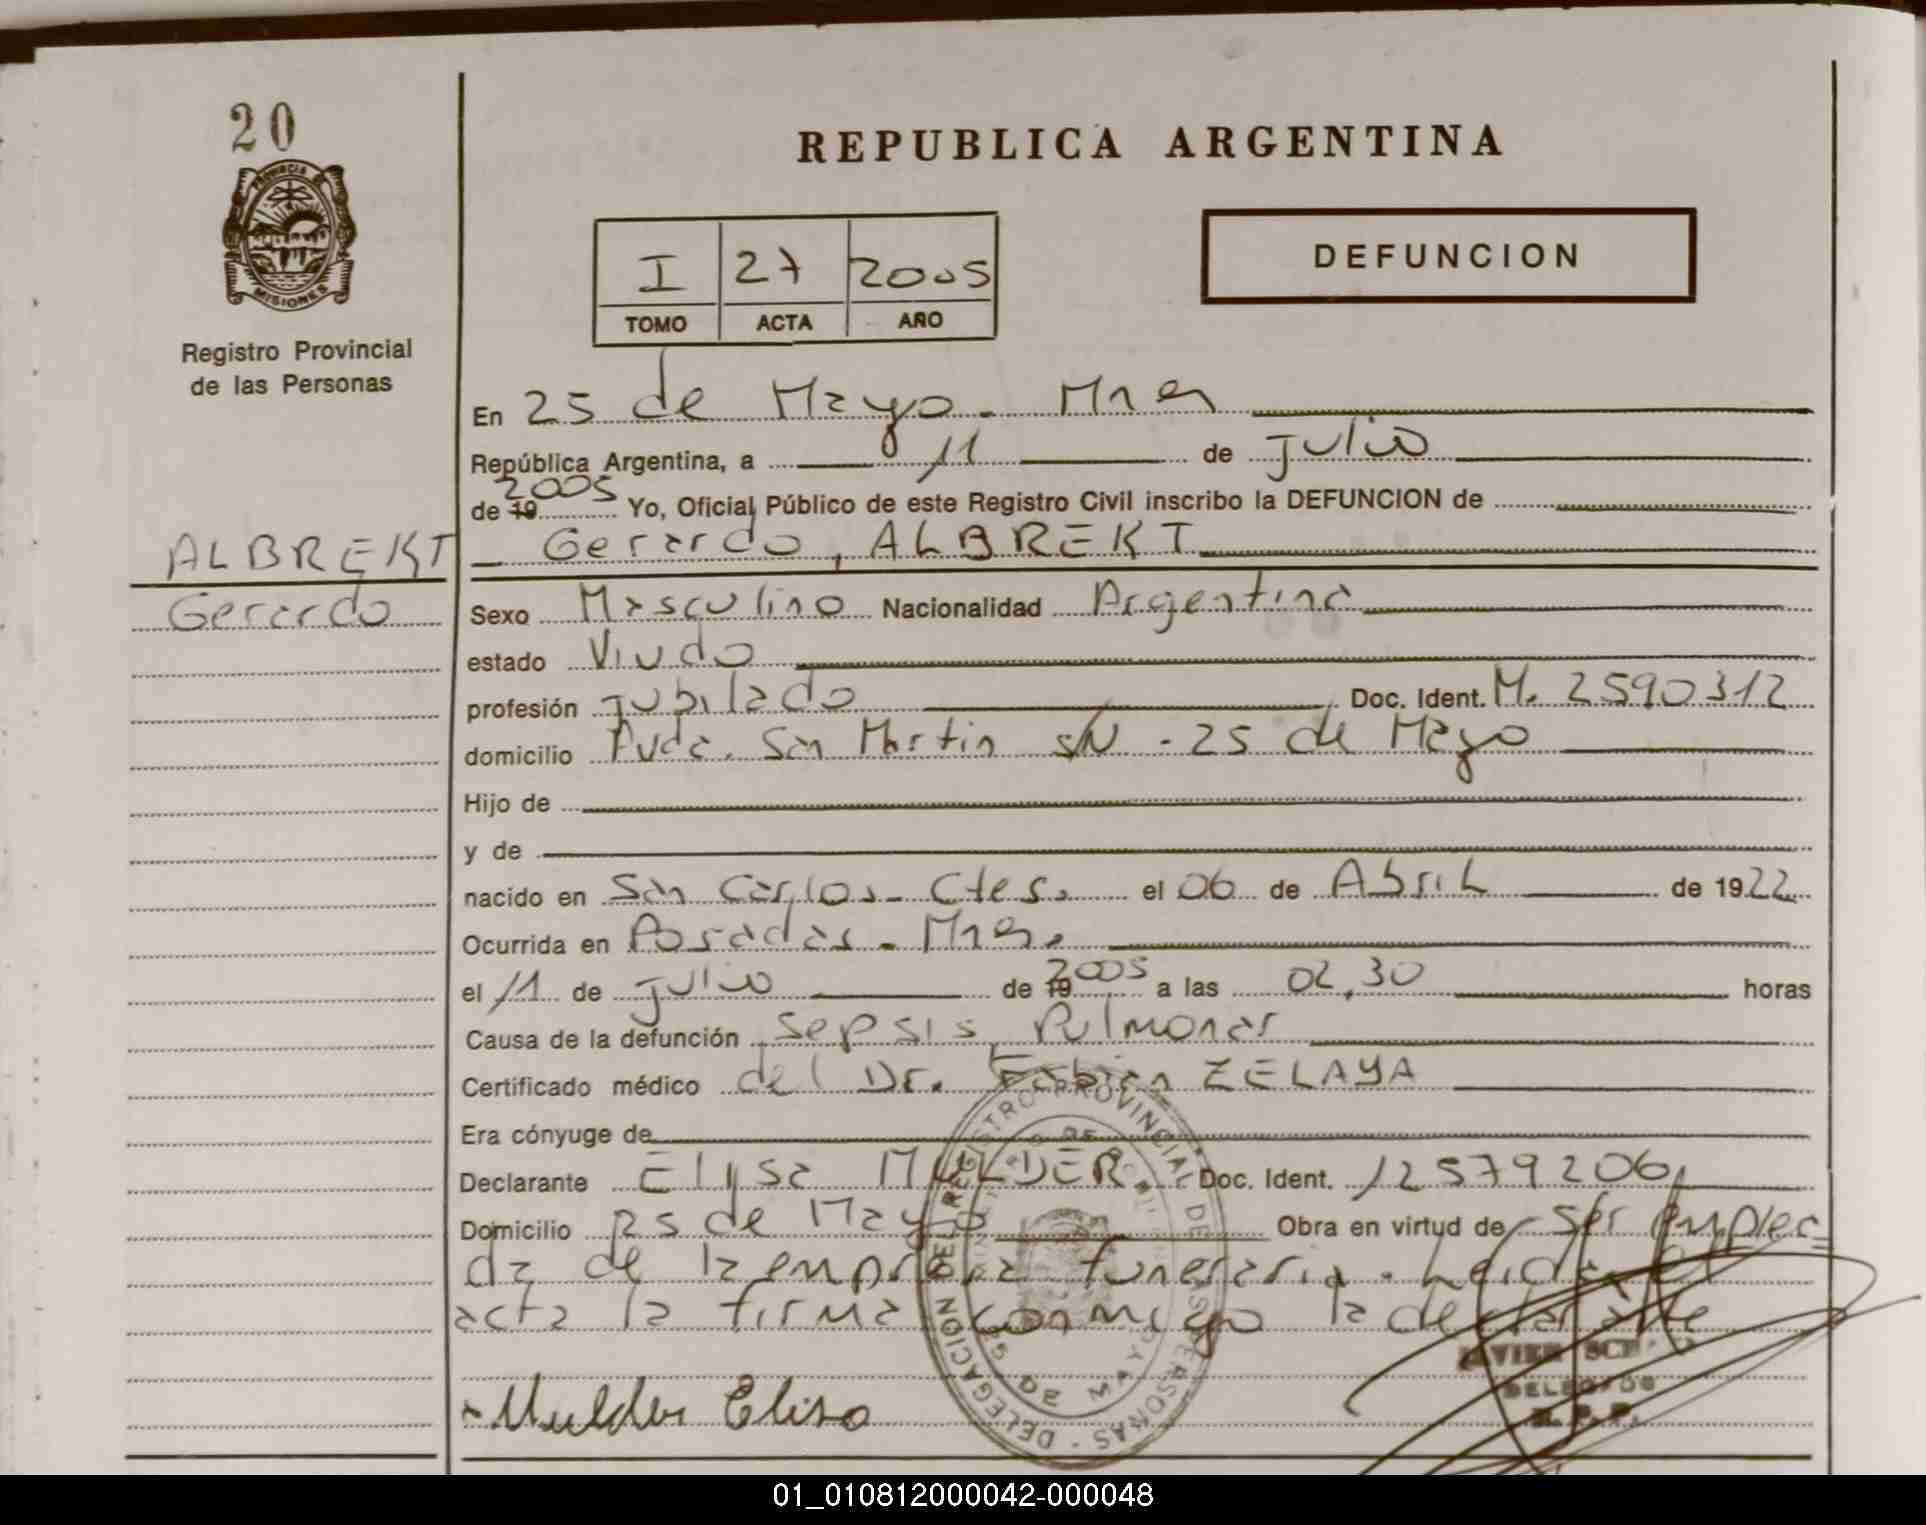 20
PROVINCIA DE
MISIONES
Registro Provincial
de las Personas
REPUBLICA ARGENTINA
I 27 2005
TOMO ACTA AÑO
DEFUNCION
En 25 de Mayo - Mnes
República Argentina, a 11 de julio
de 19 2005 Yo, Oficial Público de este Registro Civil inscribo la DEFUNCION de
Gerardo, ALBREKT
ALBREKT
Gerardo
Sexo Masculino Nacionalidad Argentina
estado Viudo
profesión jubilado Doc. Ident. M. 2590312
domicilio Avda. San Martin s/N - 25 de Mayo
Hijo de
y de
nacido en San Carlos - Ctes. el 06 de Abril de 1922
Ocurrida en Posadas - Mnes.
el 11 de julio de 19 2005 a las 02,30 horas
Causa de la defunción sepsis Pulmonar
Certificado médico del Dr. Fabian ZELAYA
Era cónyuge de
Declarante Elisa MULDER Doc. Ident. 12579206
Domicilio 25 de Mayo Obra en virtud de ser emplea
da de la empresa funeraria. Leida el
acta la firma conmigo la declarante
Mulder Elisa
REGISTRO PROVINCIAL DE LAS PERSONAS - DELEGACION DEL
25 DE MAYO
JAVIER
DELEGADO
R. P. P.
01_010812000042-000048